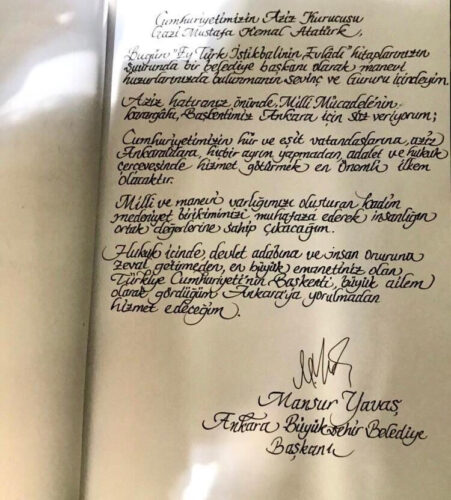 Cumhuriyetimizin Aziz Kurucusu
Gazi Mustafa Kemal Atatürk,
Bugün "Ey Türk İstikbalinin Evlâdı" hitaplarınızın
şuurunda bir belediye başkanı olarak manevi
huzurlarınızda bulunmanın sevinç ve Gururu içindeyim.
Aziz hatıranız önünde, Milli Mücadele'nin
karargâhı, Başkentimiz Ankara için söz veriyorum;
Cumhuriyetimizin hür ve eşit vatandaşlarına, aziz
Ankaralılara, hiçbir ayrım yapmadan adalet ve hukuk
çerçevesinde hizmet götürmek en önemli ilkem
olacaktır.
Milli ve manevi varlığımızı oluşturan kadim
medeniyet birikimimizi muhafaza ederek insanlığın
ortak değerlerine sahip çıkacağım.
Hukuk içinde, devlet adabına ve insan onuruna
zeval getirmeden, en büyük emanetiniz olan
Türkiye Cumhuriyeti'nin Başkenti, büyük ailem
olarak gördüğüm Ankara'ya yorulmadan
hizmet edeceğim.
Mansur Yavaş
Ankara Büyükşehir Belediye
Başkanı